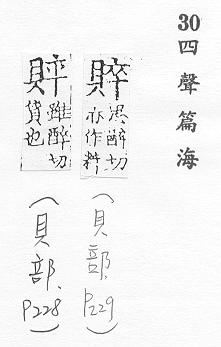 30 四聲篇海
賥
思醉切
亦作
(貝部、P229)
賥
雖醉切
貨也
(貝部、P228)